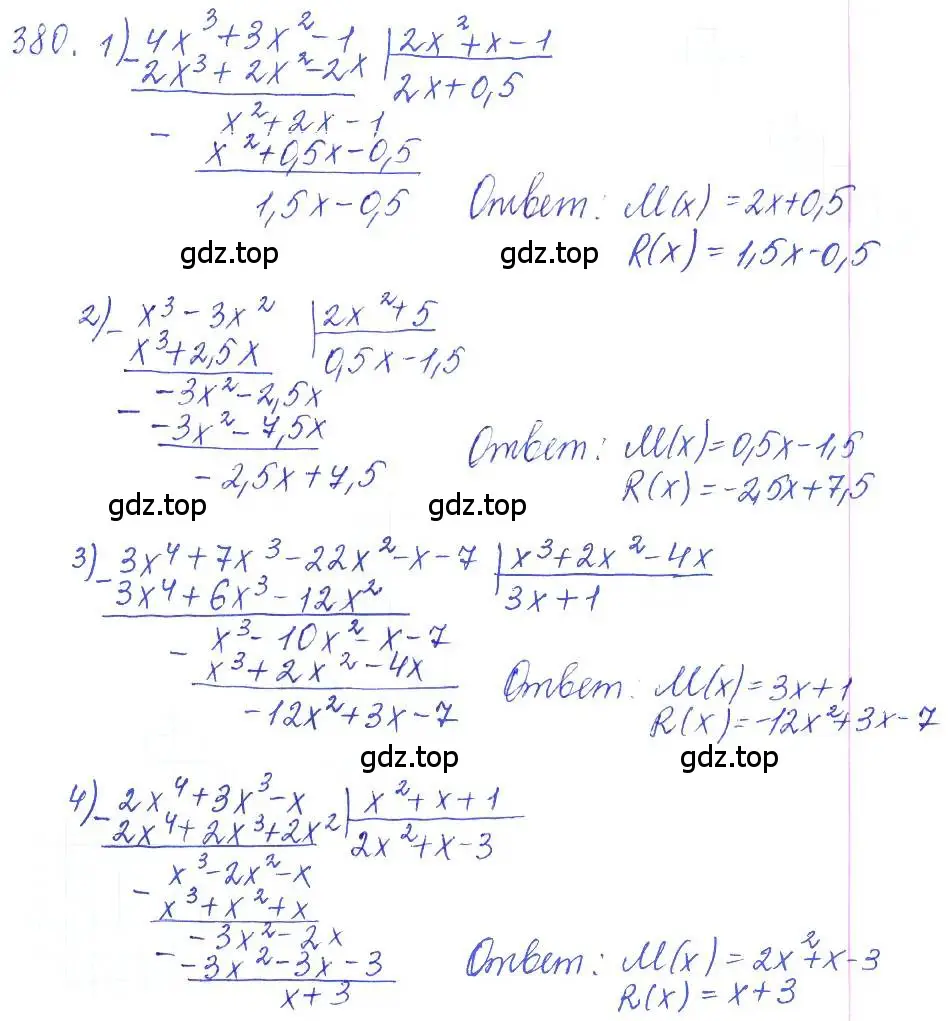 380. 1) 4x³+3x²-1 | 2x²+x-1
2x³+2x²-2x | 2x+0,5
- x²+2x-1
x²+0,5x-0,5
1,5x-0,5
Ответ: M(x)=2x+0,5
R(x)=1,5x-0,5
gdz.top gdz.top
2) - x³-3x² | 2x²+5
x³+2,5x | 0,5x-1,5
- -3x²-2,5x
-3x²-7,5x
-2,5x+7,5
Ответ: M(x)=0,5x-1,5
R(x)=-2,5x+7,5
gdz.top gdz.top
3) - 3x⁴+7x³-22x²-x-7 | x³+2x²-4x
3x⁴+6x³-12x² | 3x+1
- x³-10x²-x-7
x³+2x²-4x
-12x²+3x-7
Ответ: M(x)=3x+1
R(x)=-12x²+3x-7
gdz.top gdz.top
4) - 2x⁴+3x³-x | x²+x+1
2x⁴+2x³+2x² | 2x²+x-3
- x³-2x²-x
x³+x²+x
- -3x²-2x
-3x²-3x-3
x+3
Ответ: M(x)=2x²+x-3
R(x)=x+3